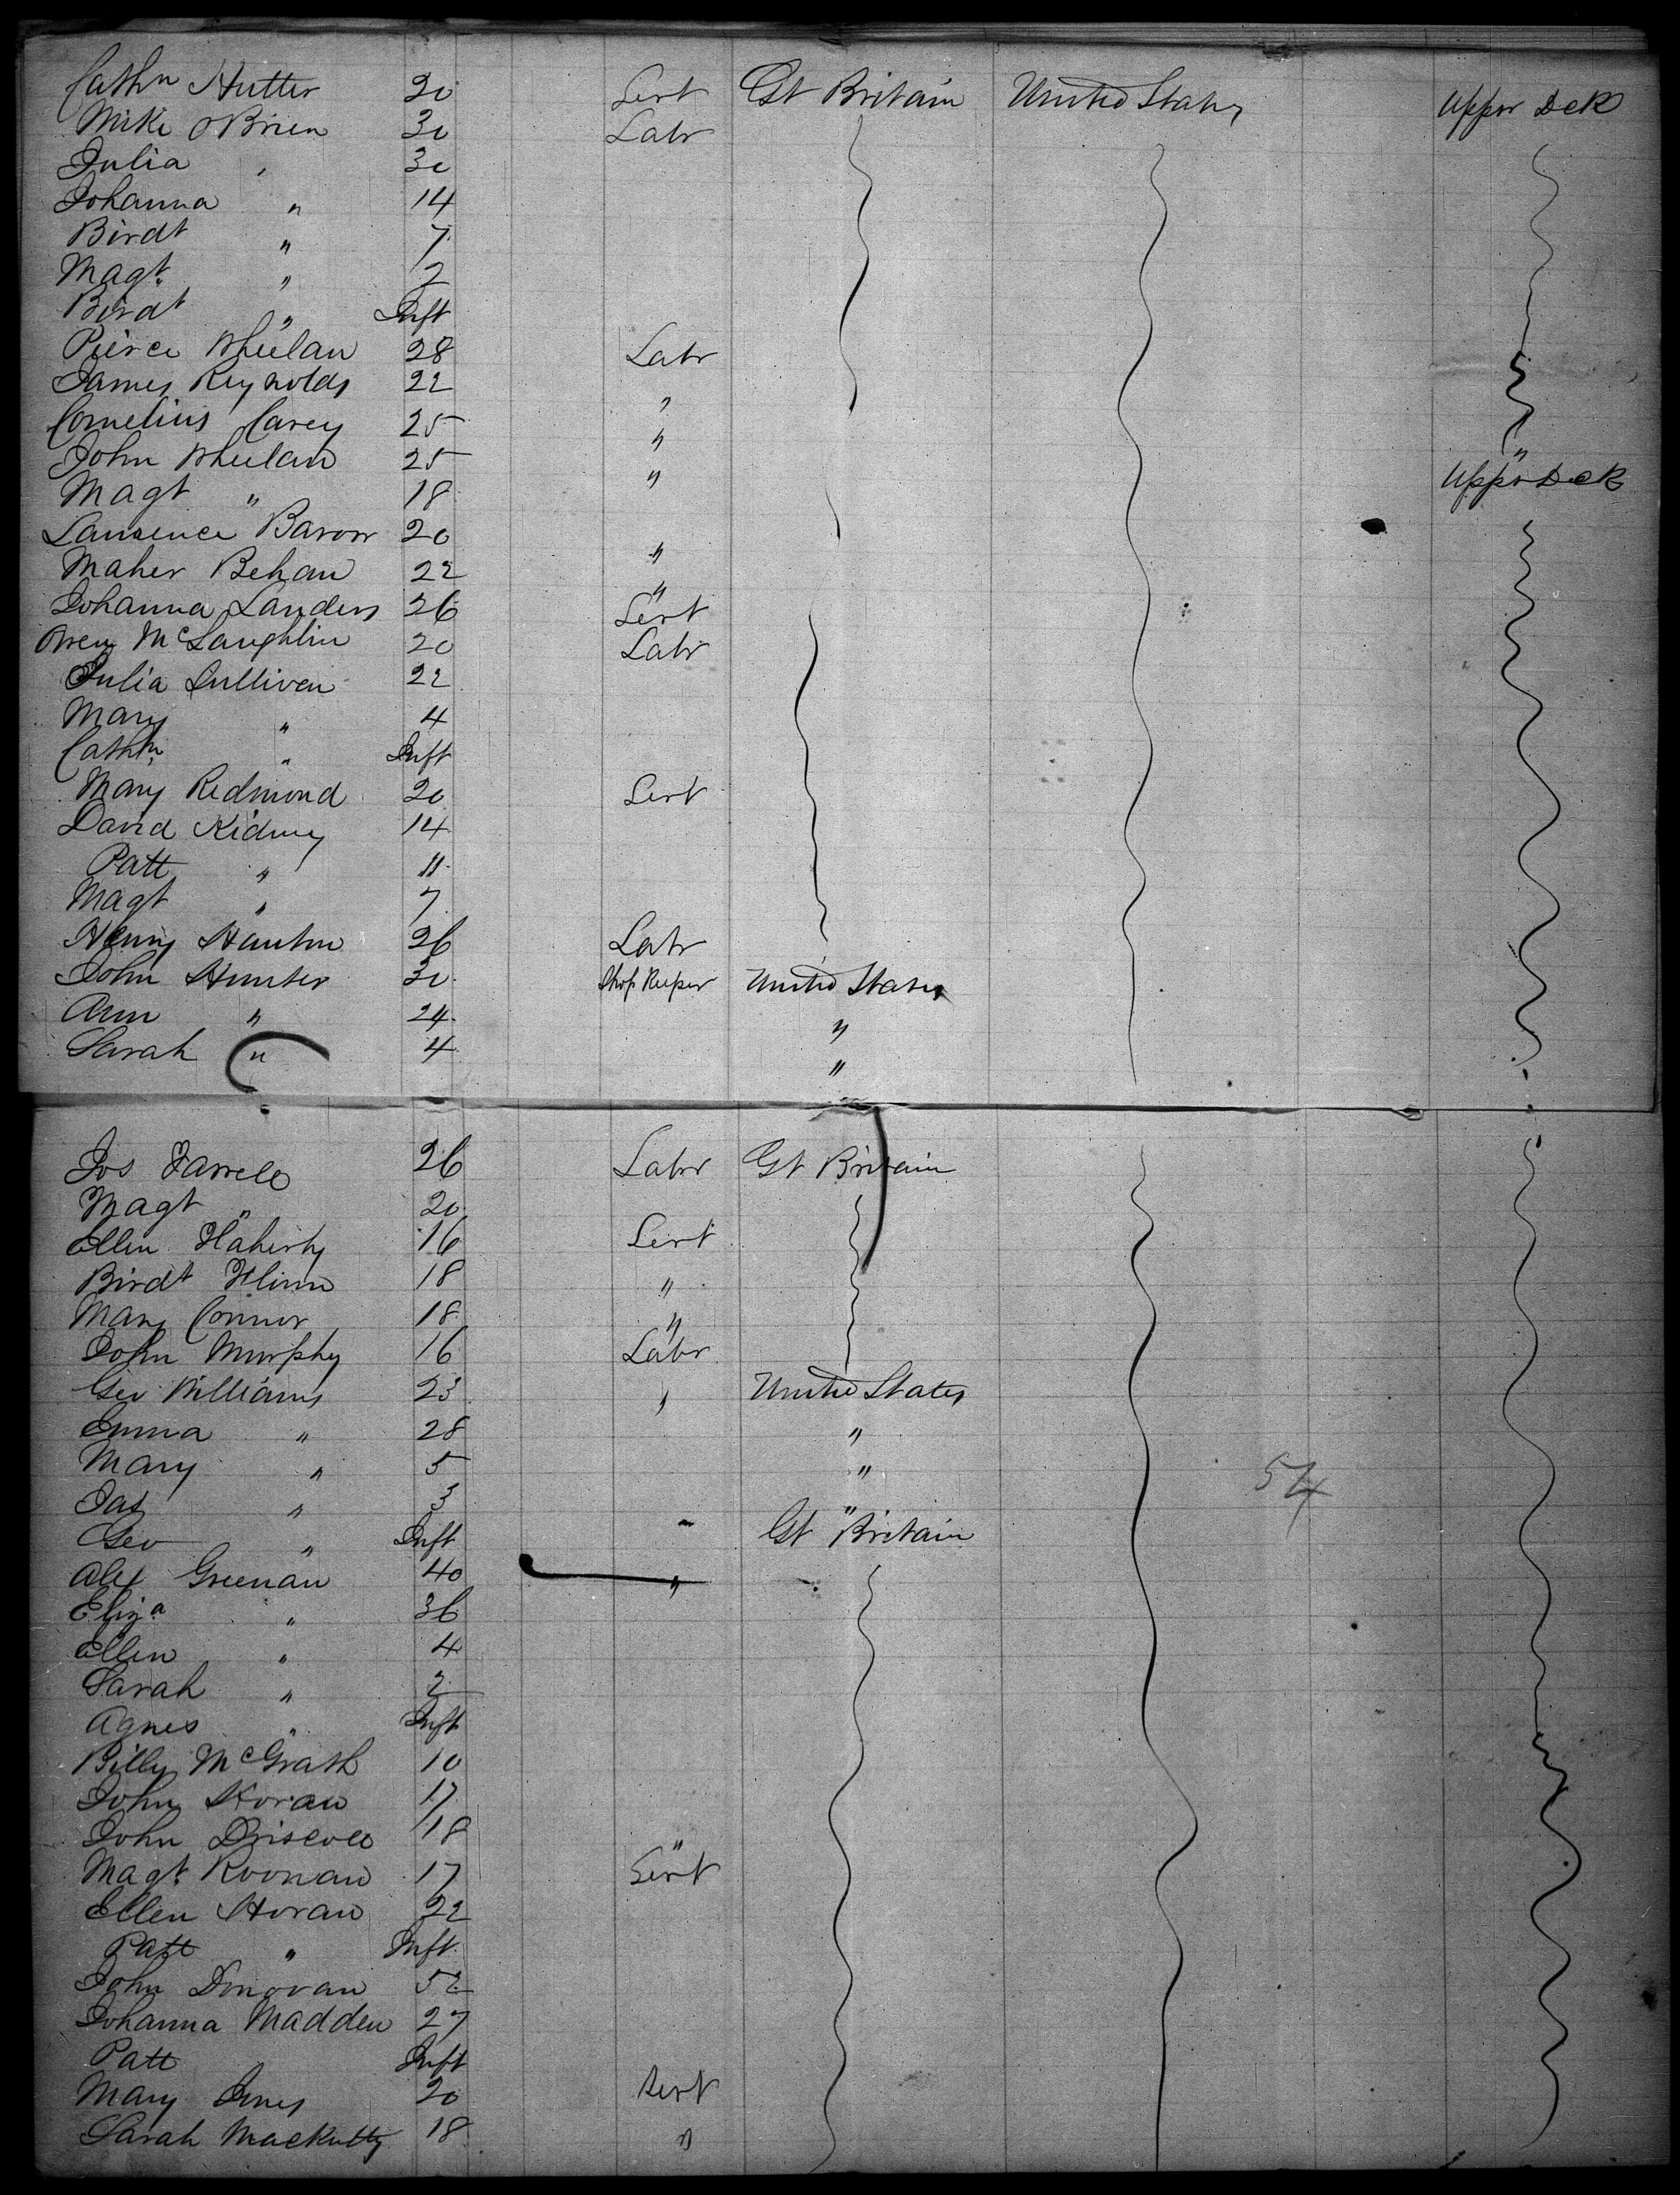 Cathn Hutter 20 Sert Gt Britain United States Upper Deck
Mike OBrien 30 Labr
Julia " 30
Johanna " 14
Birdt " 7
Magt " 2
Birdt " Inft
Pierce Wheelan 28 Labr
James Reynolds 22 "
Cornelius Carey 25 "
John Wheelan 25 " "
Magt " 18 Upper Deck
Laurence Baron 20 "
Maher Behan 22 "
Johanna Landers 26 Sert
Owen McLaughlin 20 Labr
Julia Sullivan 22
Mary " 4
Cathn " Inft
Mary Redmond 20 Sert
David Kidney 14
Patt " 11
Magt " 7
Henry 26 Labr
John Hunter 30 Shop Keeper United States
Ann " 24 "
Sarah " 4 "
Jos Farrell 26 Labr Gt Britain
Magt " 20
Ellen Flaherty 16 Sert
Birdt Flinn 18 "
Mary Connor 18 "
John Murphy 16 Labr
Geo Williams 23 " United States
Emma " 28 "
Mary " 5 "
Jas " 3 "
54
Geo " Inft Gt Britain
Alex Greenan 40 "
Eliza " 36
Ellen " 4
Sarah " 2
Agnes " Inft
Billy McGrath 10
John Horan 17
John Driscoll 18 "
Magt Roonan 17 Sert
Ellen Horan 22
Patt " Inft
John Donovan 52
Johanna Madden 27
Patt Inft
Mary Jones 20 Sert
Sarah 18 "